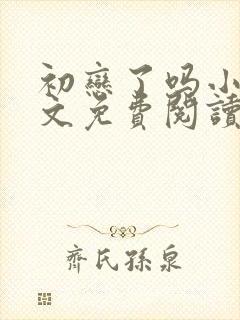 初戀了吗小
文免費閱讀
齊氏孫泉